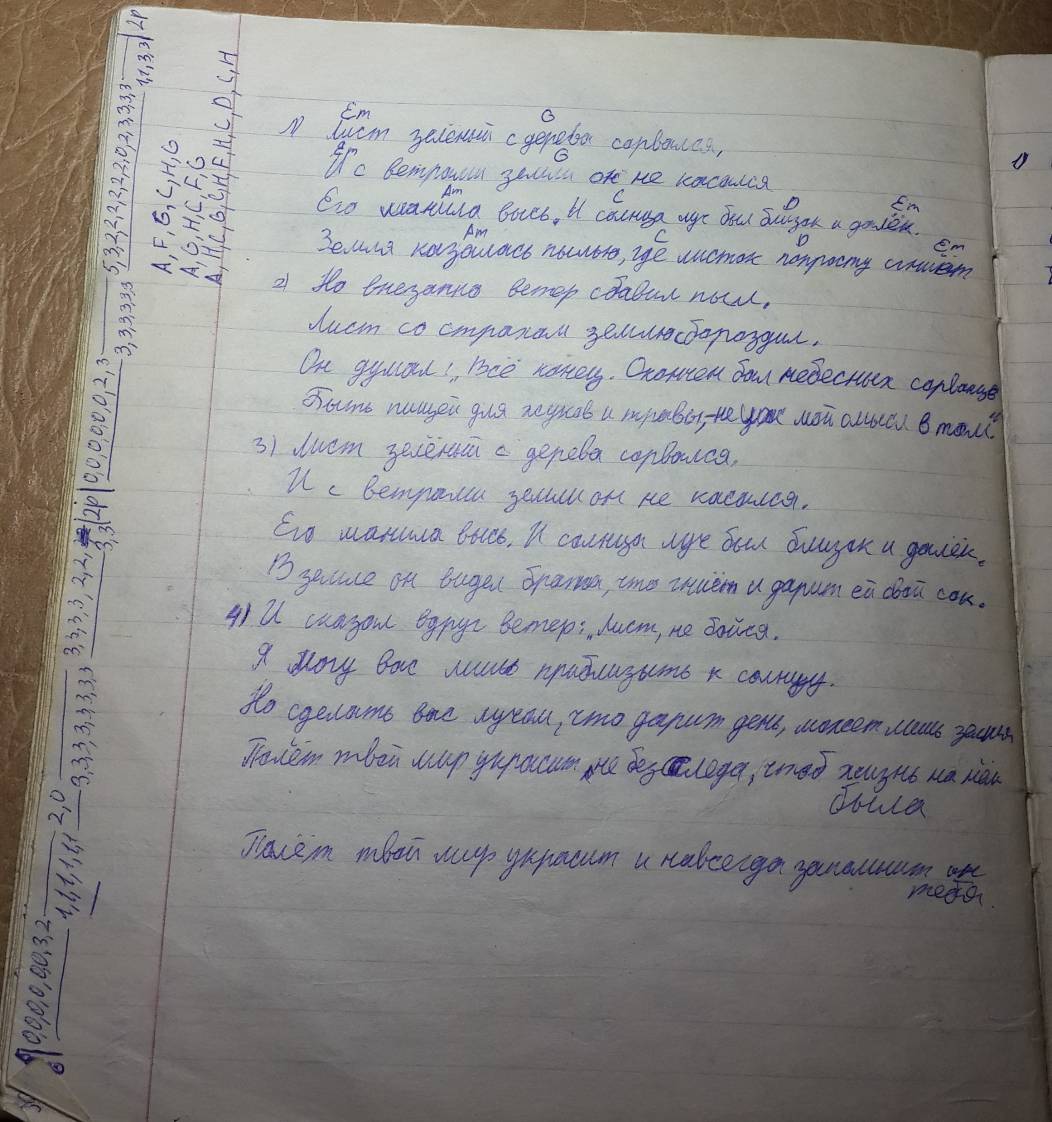 Em G
1) Лист зелёный с дерева сорвался,
Em G
И с ветрами земли он не касался
Am C D Em
Его манила высь. И солнца луч был близок и далёк.
Am C D Em
Земля казалась пылью, где листок попросту сгниёт
2) Но внезапно ветер сбавил пыл.
Лист со страхом землю сбороздил.
Он думал: „Всё конец. Окончен бал небесных сорванцов
Быть пищей для жуков и травы, мой смысл в том"
3) Лист зелёный с дерева сорвался.
И с ветрами земли он не касался.
Его манила высь. И солнца луч был близок и далёк.
В земле он видел брата, что гниёт и дарит ей свой сок.
4) И сказал вдруг ветер: „Лист, не бойся.
Я могу вас лишь приблизыть к солнцу.
Но сделать вас лучом, что дарит день, может лишь земля
Полёт твой мир украсит, не без следа, чтоб жизнь на нём
была
Полёт твой мир украсит и навсегда запомнит он
тебя.
A, F, G, C, H, G
A, G, H, C, F, G
A, H, C, G, C, H, F, H, C, D, C, H